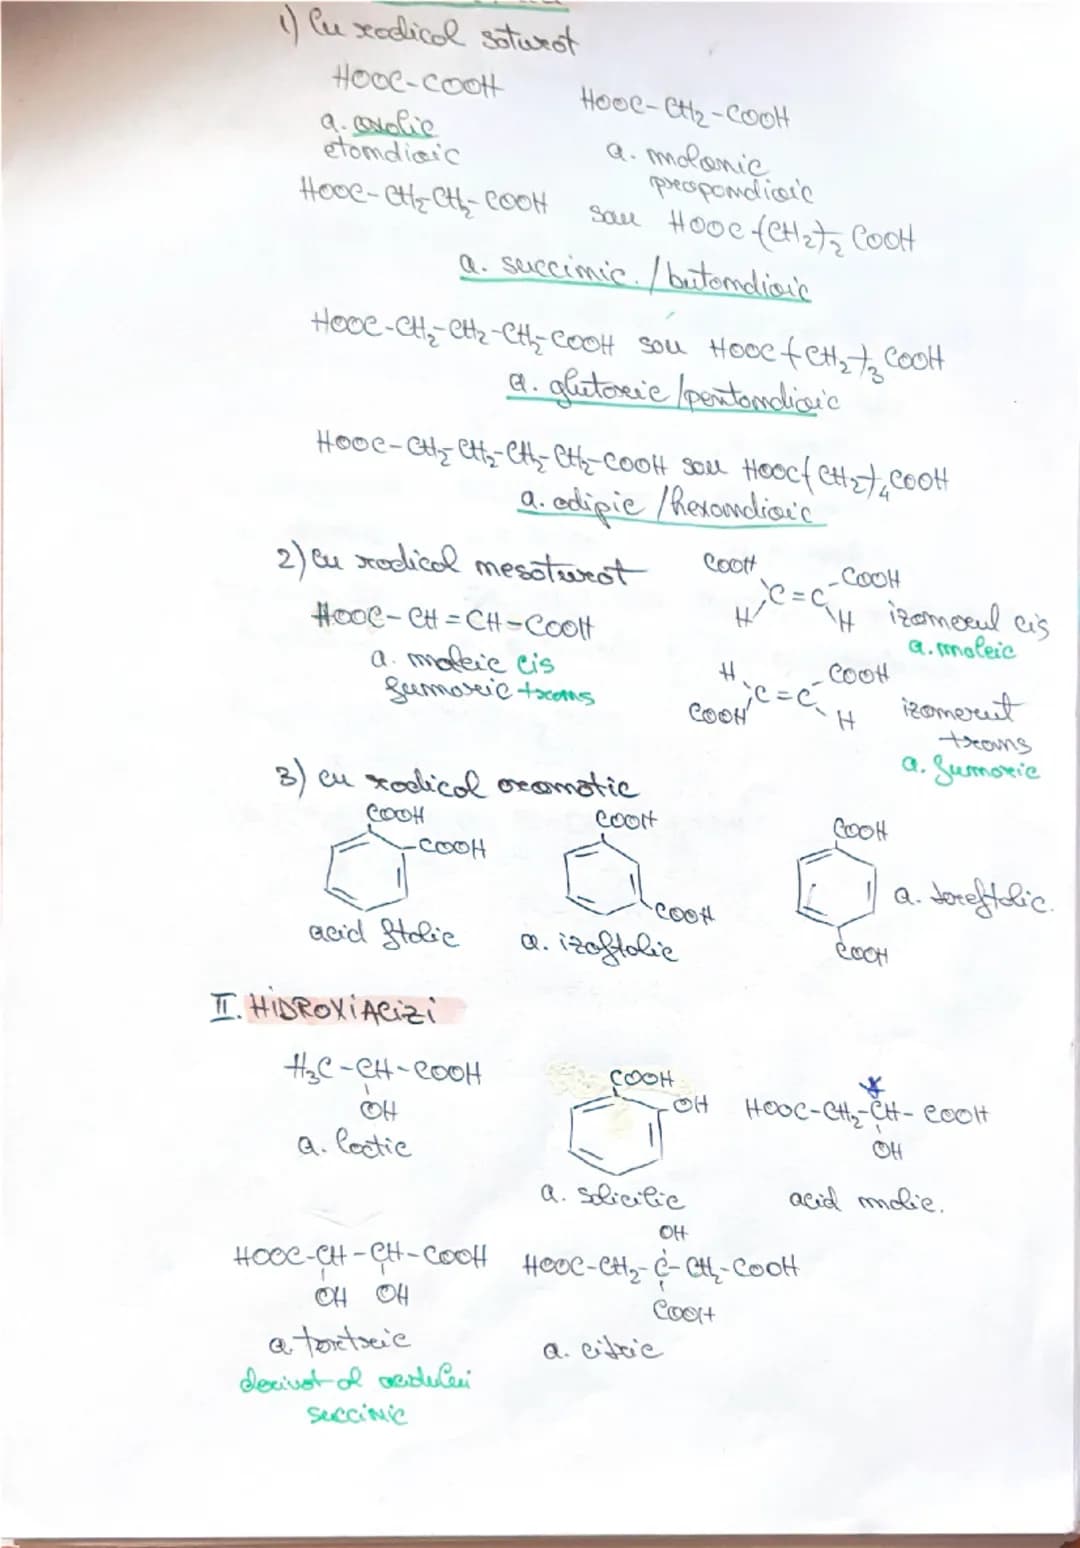 1) Cu radical saturat
HOOC-COOH
HOOC-CH2-COOH
a. oxalic
etandioic
a. malonic
propandioic
HOOC-CH2-CH2-COOH sau HOOC-(CH2)2-COOH
a. succinic. / butandioic
HOOC-CH2-CH2-CH2-COOH sau HOOC-(CH2)3-COOH
a. glutaric / pentandioic
HOOC-CH2-CH2-CH2-CH2-COOH sau HOOC-(CH2)4-COOH
a. adipic / hexandioic
2) Cu radical nesaturat
HOOC-CH=CH-COOH
a. maleic cis
fumaric trans
COOH COOH
C=C
H H
izomerul cis
a. maleic
H COOH
C=C
COOH H
izomerul
trans
a. fumaric
3) cu radical aromatic
COOH
-COOH
acid ftalic
COOH
COOH
a. izoftalic
COOH
COOH
a. tereftalic.
II. HIDROXIACIZI
H3C-CH-COOH
OH
a. lactic
COOH
OH
a. salicilic
HOOC-CH2-CH-COOH
OH
acid malic.
HOOC-CH-CH-COOH
OH OH
a. tartric
derivat al acidului
succinic
OH
HOOC-CH2-C-CH2-COOH
COOH
a. citric